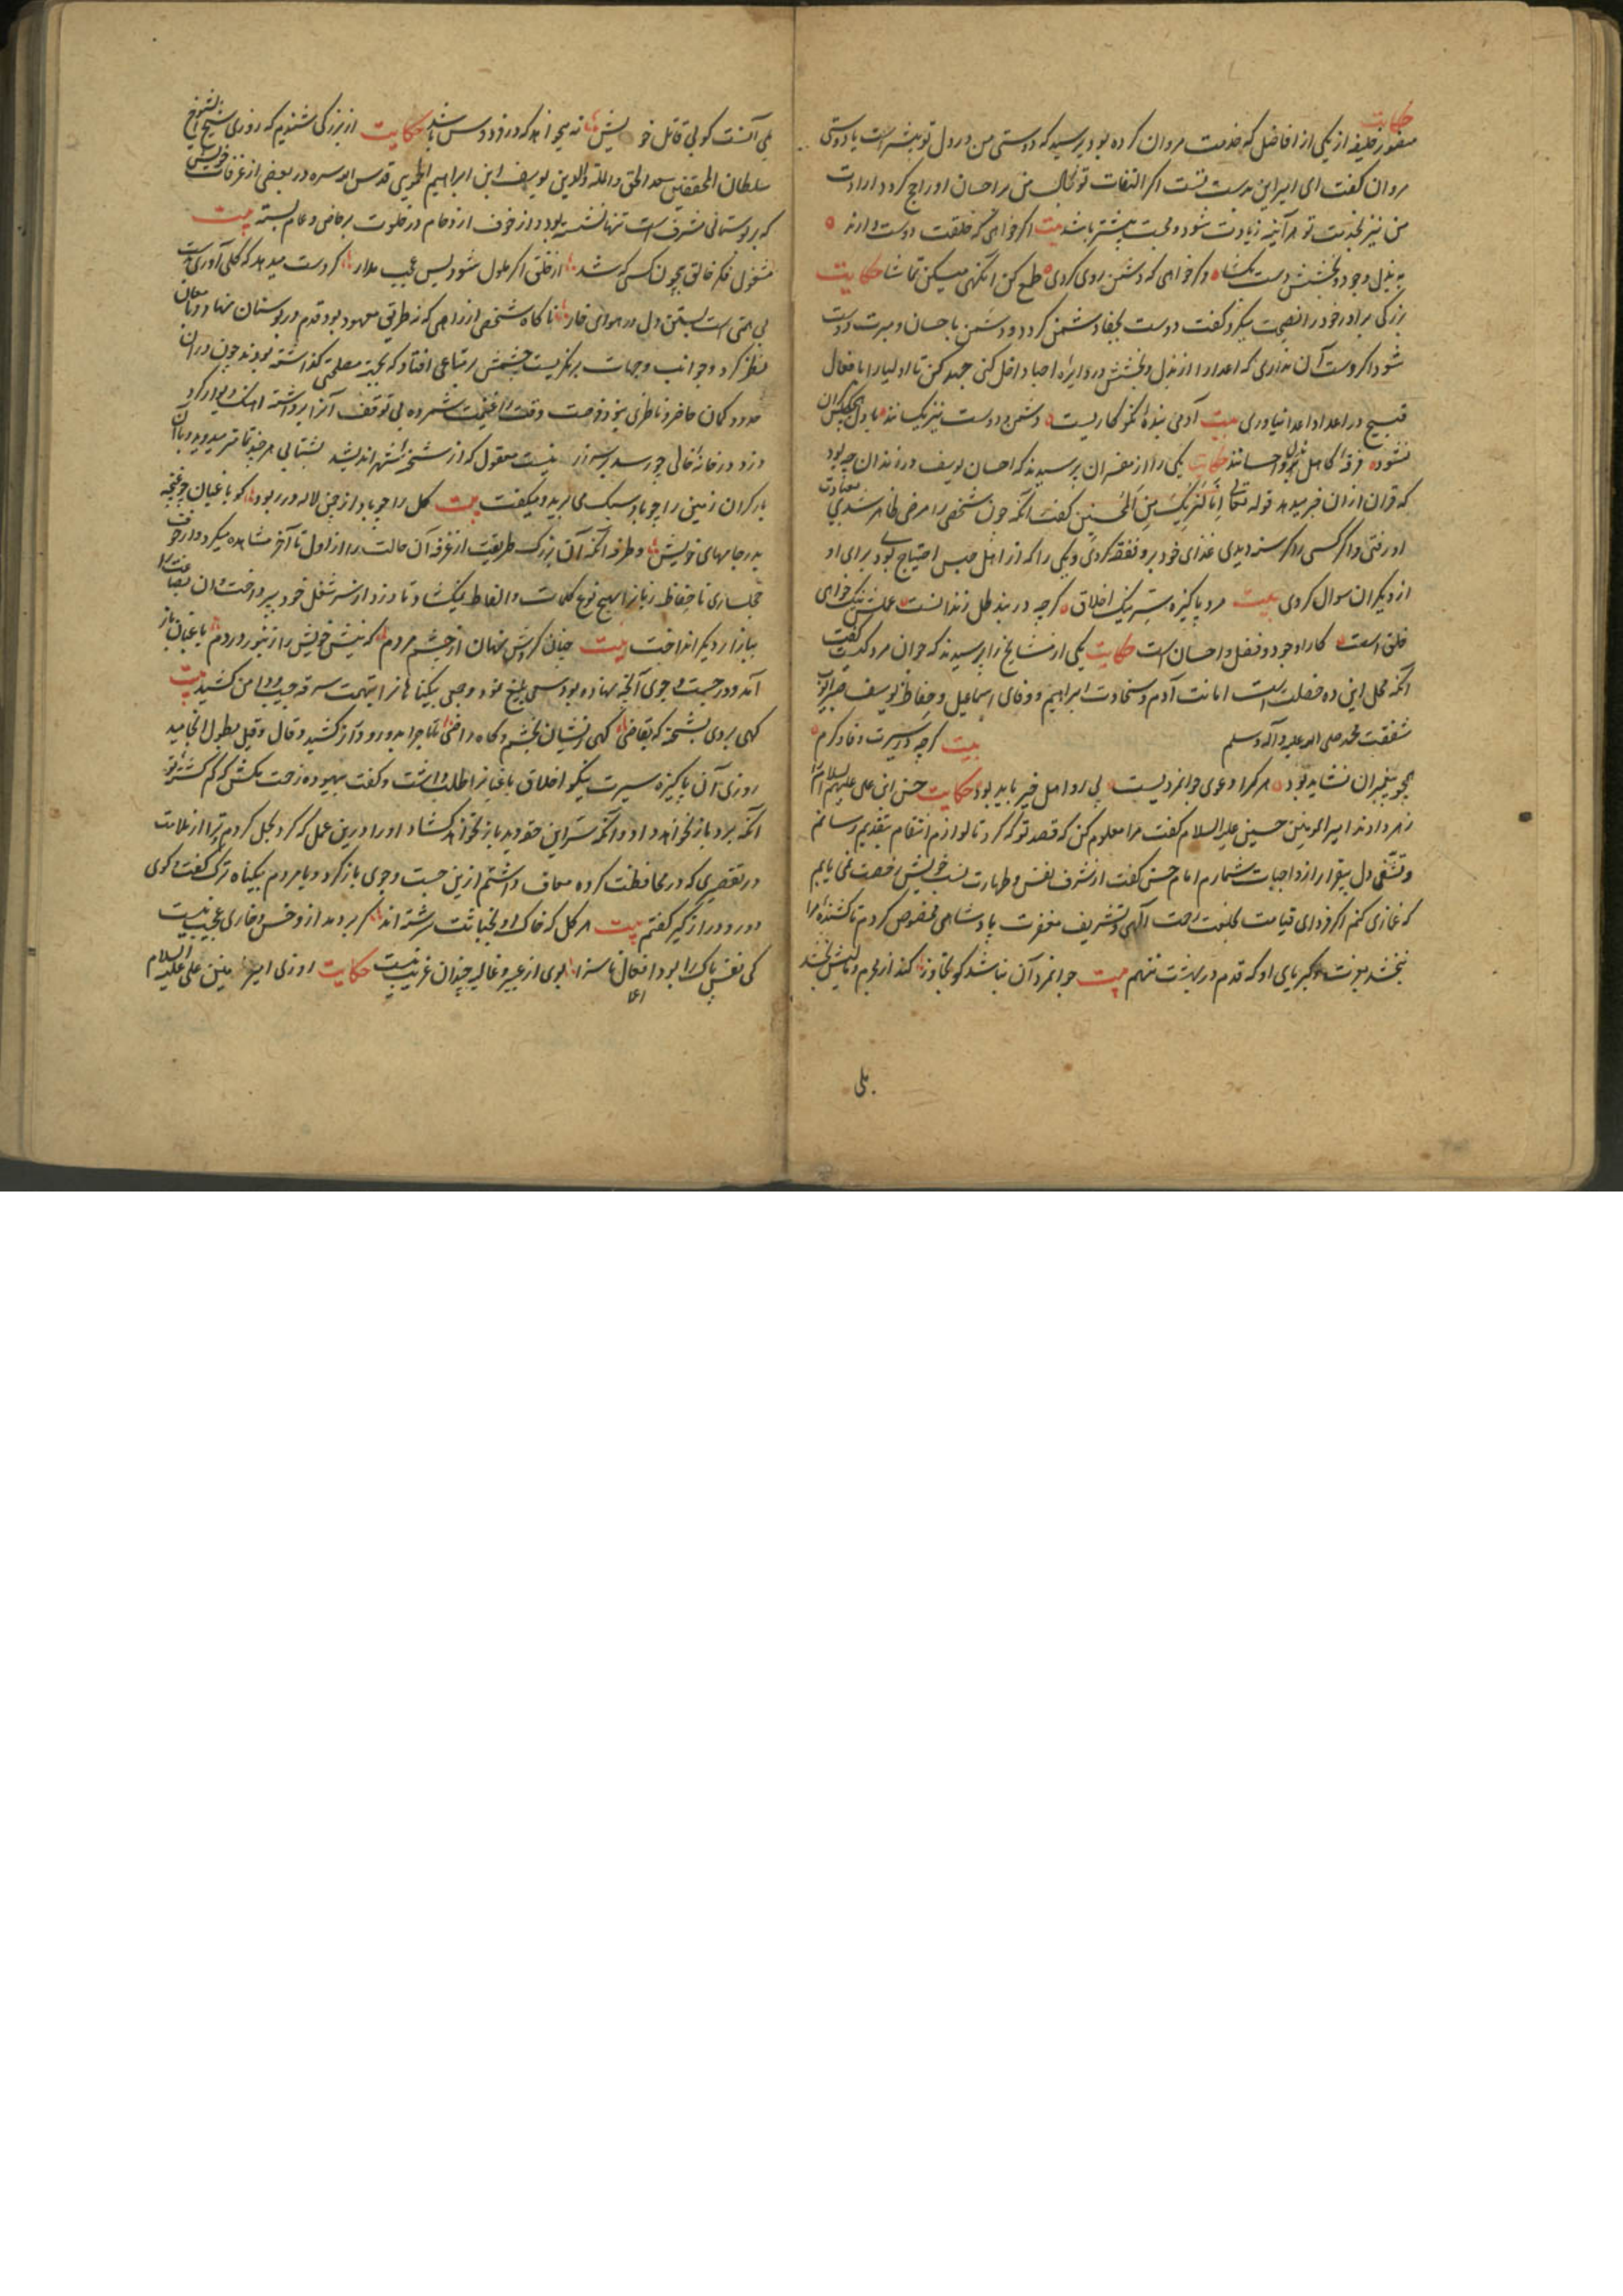 حکایت
منصور خلیفه از یکی از افاضل که خدمت مروان کرده بود پرسید که دوستی من در دل تو بیشتر است یا دوستی
مروان گفت ای امیر این بدست تست اگر التفات تو بجانب من بر احسان او راجح گردد ارادت
من نیز بخدمت تو هر آینه زیادت شود و محبت بیشتر باشد بیت اگر خواهی که خلقت دوست دارند
به بذل وجود و بخشش دست بگشا وگر خواهی که دشمن روی کردی طمع کن آنگهی میکن تماشا حکایت
بزرگی برادر خود را نصیحت میکرد گفت دوست بجفا دشمن گردد و دشمن باحسان و مبرت دوست
شود اگر دست آن نداری که اعدا را از بذل و بخشش در دایره احبا داخل کنی جهد کن تا اولیا را بافعال
قبیح در اعداد اعدا نیاوری بیت آدمی بنده نکوکاریست دشمن و دوست نیز یکسانند بادل هیچکس گران
نشود فرقه کاهل بذل و احسانند حکایت یکی را از مفسران پرسیدند که احسان یوسف در زندان چه بود
که قران از ان خبر میدهد قوله تعالی انا لنریک من المحسنین گفت آنکه چون شخصی را مرضی ظاهر شدی بعیادت
او رفتی و اگر کسی را گرسنه دیدی غذای خود برو نفقه کردی و یکی را که از اهل حبس احتیاج بودی برای او
از دیگران سوال کردی بیت مرد پاکیزه سیرت نیک اخلاق گرچه در بند ظل زندانست علتش نیک خواهی
خلق است کار او جود و فضل و احسان است حکایت یکی از مشایخ را پرسیدند که جوان مرد کیست گفت
آنکه محلی این ده خصلت است امانت آدم و سخاوت ابراهیم و وفای اسماعیل و حفاظ یوسف صبر ایوب
شفقت محمد صلی الله علیه و آله وسلم بیت گرچه در سیرت و وفا و کرم
همچو پیغمبران نشاید بود هر کرا دعوی جوانمردیست پی رو اهل خیر باید بود حکایت حسن ابن علی علیهم السلام را
زهر دادند امیر المومنین حسین علیه السلام گفت مرا معلوم کن که قصد تو که کرد تا لوازم انتقام بتقدیم رسانم
و تشفی دل بیقرار از واجبات شمارم امام حسن گفت از شرف نفس و طهارت نسب خویش رخصت نمی یابم
که غمازی کنم اگر فردای قیامت بخلعت رحمت الهی و تشریف مغفرت پادشاهی مخصوص کردم تا کشنده مرا
نبخشد بعزت و کبریای او که قدم در بهشت ننهم بیت جوانمرد آن نباشد کو تجاوز کند از جرم و مالیش بخشد
بلی
بلی آنست کو بی قاتل خویش نه میخواهد که در فردوس باشد حکایت از بزرگی شنیدم که روزی شیخ الشیوخ
سلطان المحققین سعد الحق والملة والدین یوسف ابن ابراهیم الحموی قدس الله سره در بعضی از غرفات خویش
که بر بوستانی مشرف است تنها نشسته بود و از خوف ازدحام در خلوت بر خاص و عام بسته بیت
مشغول فکر خالق بیچون کسی که شد از خلق اگر ملول شود بس عجب مدار گر دست میدهد که گلی آوری بدست
بی همتی است بستن دل در هوای خار ناگاه شخصی از راهی که نه طریق معهود بود قدم در بوستان نهاد و بامعان
نظر کرد و جوانب و جهات برنگریست چشمش بر متاعی افتاد که بجهة مصلحتی گذاشته بودند چون در ان
حدود گمان حاضر و ناظری نبود فرصت وقت را غنیمت شمرده بی توقف آنرا برداشته اهنک دیوار کرد
دزد در خانه خالی چو رسد بر سر زر نیست معقول که از شحنه شهر اندیشد بشتابی هر چند تمامتر میدوید و با آن
بار گران زمین را چو باد سبک می برید و میگفت بیت گل را چو باد از چمن لاله در ربود کو باغبان چو غنچه
بدر جامهای خویش و طرفه آنکه آن بزرک طریقت از غرفه آن حالت را از اول تا آخر مشاهده میکرد و از خوف
خجلساری تا حفاظ زبان را بهیچ نوع کلمات و الفاظ نمیگشاد تا دزد از سر شغل خود بپرداخت و ان بضاعت را
ببازار دیگر انداخت بیت چنان کردش نهان از چشم مردم که نیش خویش را زنبور در دم باغبان باز
آمد و در جست و جوی آنچه نهاده بود سعی بلیغ نمود و جمعی بیگناهانرا بتهمت سرقه جیب و دامن کشید بیت
گهی بردی بشحنه که بقاضی گهی زیشان بخشم و گاه راضی تا ماجرا بدور و دراز کشید و قال و قیل بطول انجامید
روزی آن پاکیزه سیرت نیکو اخلاق باغبانرا طلب داشت و گفت بیهوده زحمت مکش که گم کشته تو
آنکه برد باز نخواهد داد و آنکه سر این حقه دید باز نخواهد گشاد و او را درین عمل که کرد بحل کردم و ترا از ملامت
در تقصیری که در محافظت کرده معاف داشتم ازین جست و جوی باز گرد و با مردم بیگناه ترک گفت و گوی
دور و دراز گیر گفتم بیت هر گل که خاک او بخباثت سرشته اند گر بر دمد ازو خس و خاری عجیب نیست
کی نفس پاک را بود افعال ناسزا بوی از عبیر و غالیه چندان غریب نیست حکایت روزی امیر المومنین علی علیه السلام